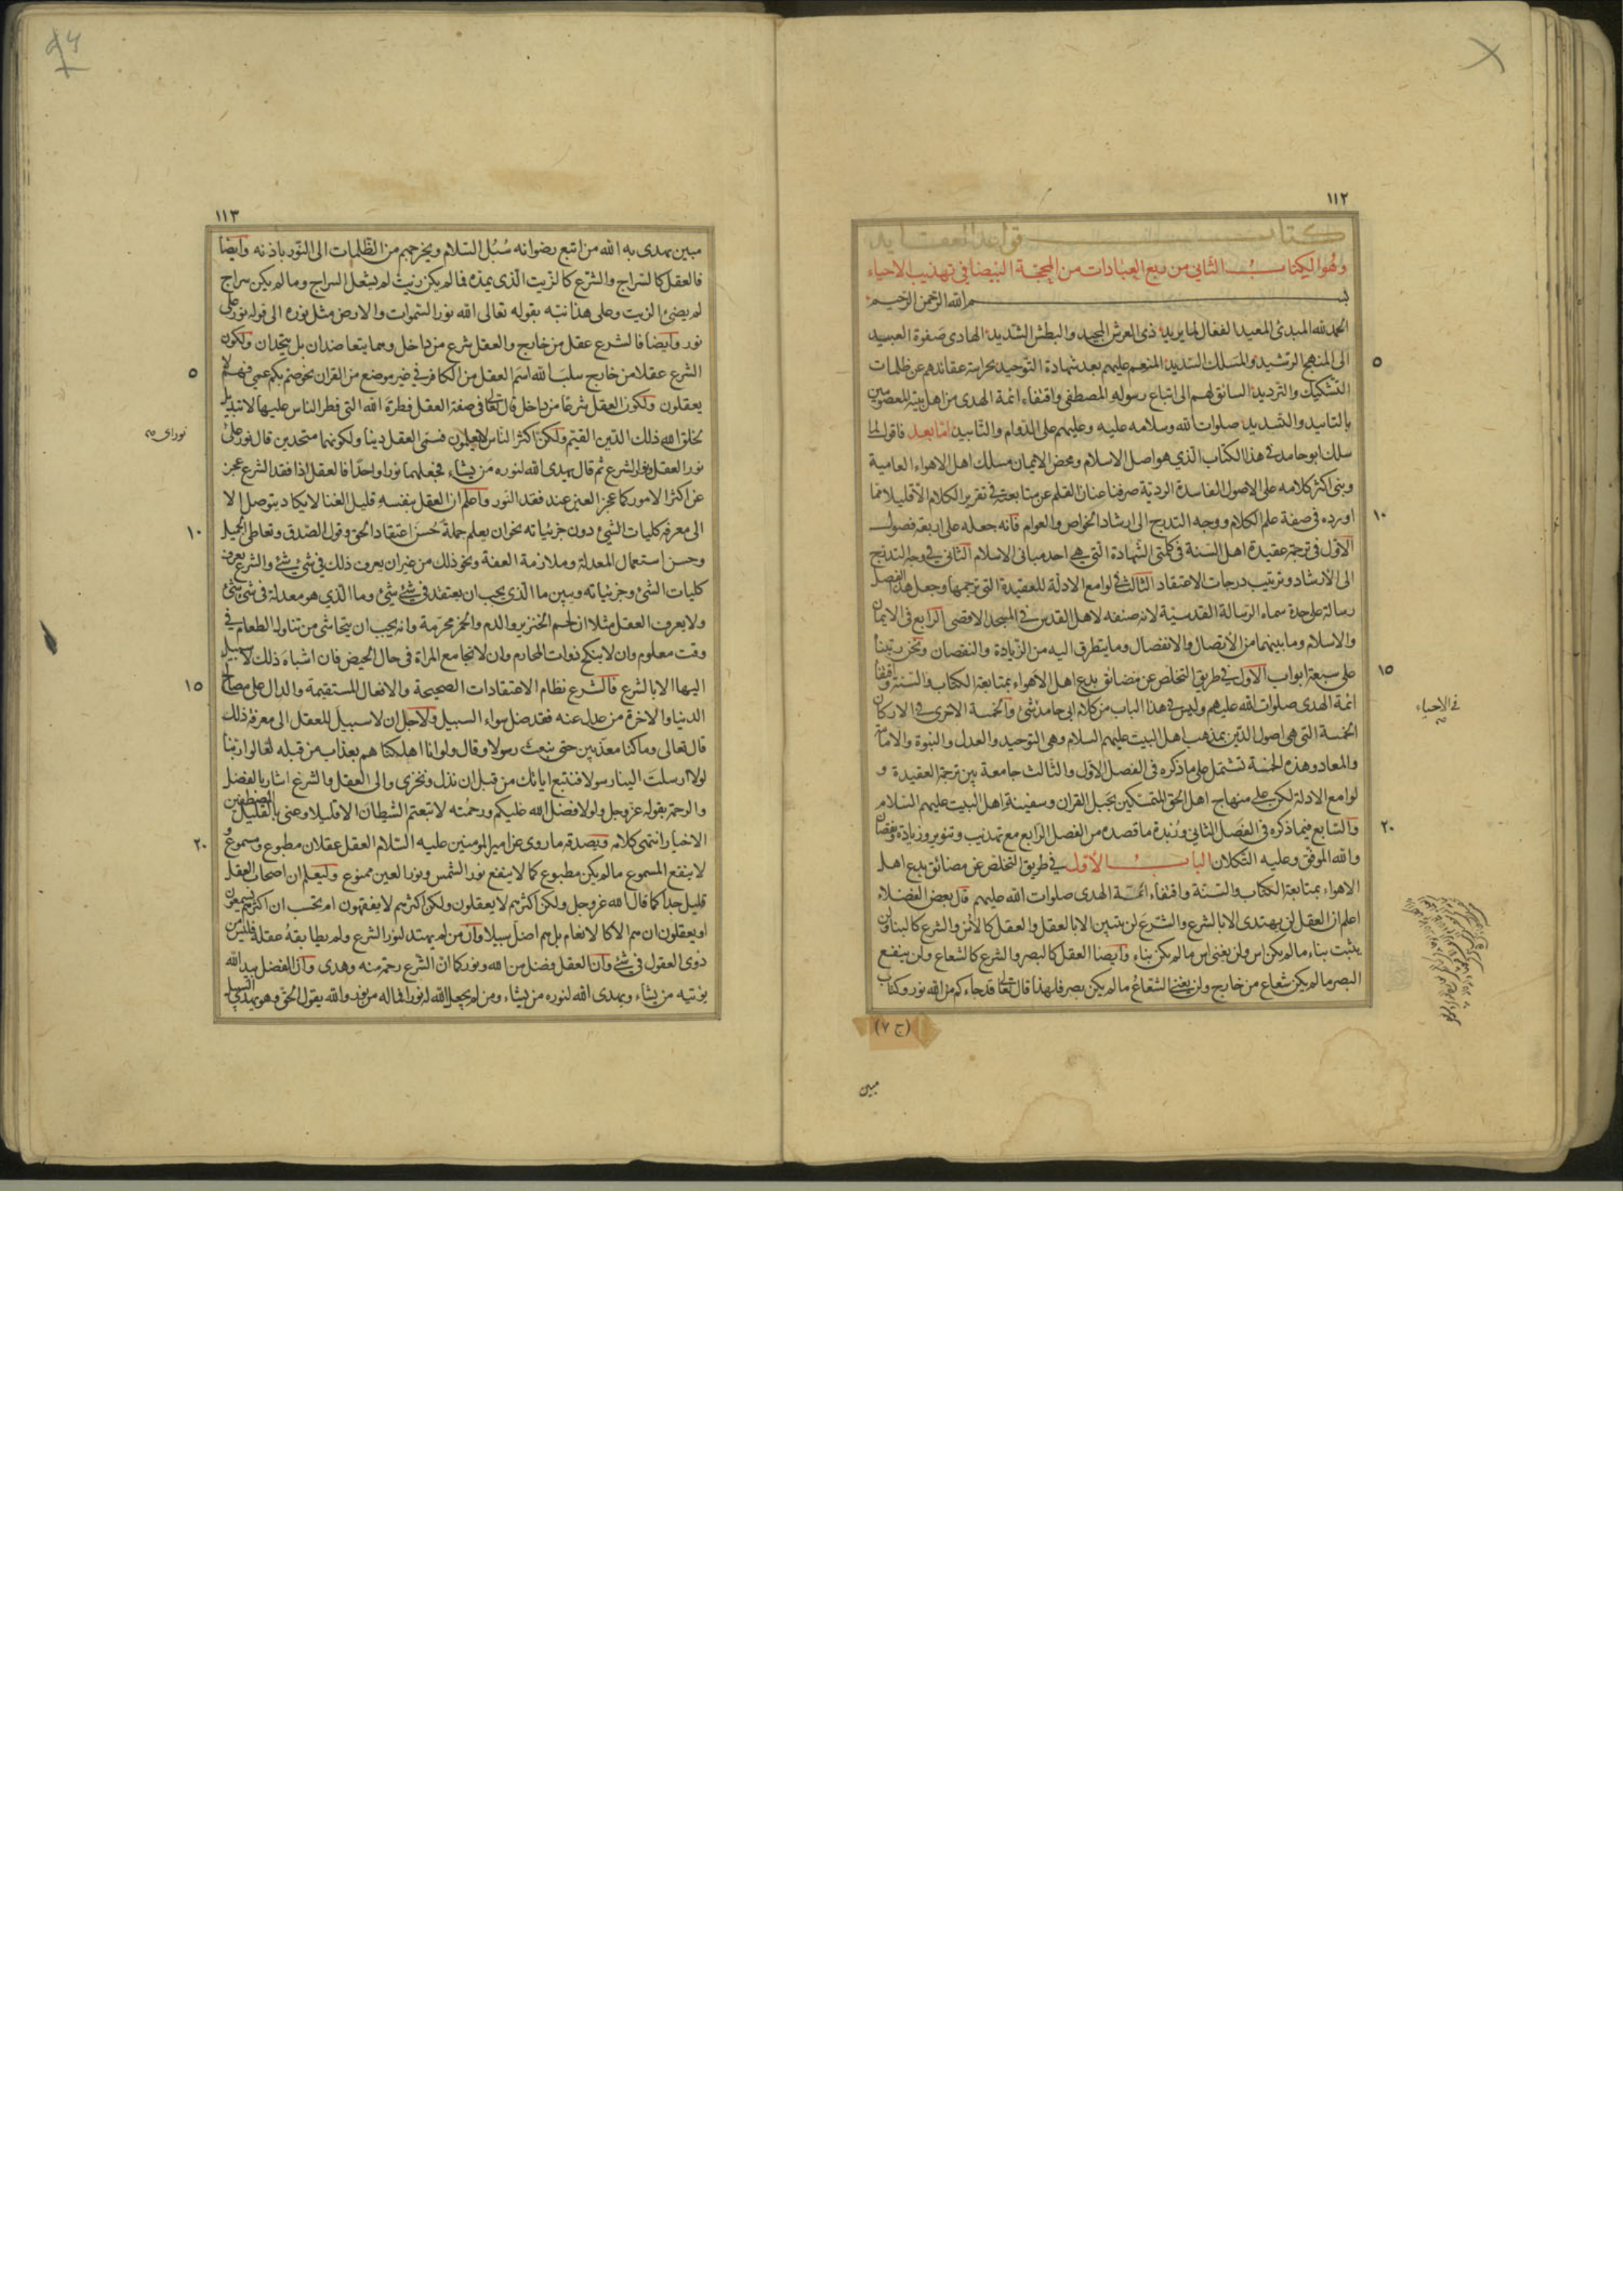 ١١٢
كتاب قواعد العقايد
وهو الكتاب الثاني من ربع العبادات من المحجة البيضا في تهذيب الاحياء
بسم الله الرحمن الرحيم
الحمد لله المبدئ المعيد الفعال لما يريد ذى العرش المجيد والبطش الشديد الهادى صفوة العبيد
الى المنهج الرشيد والمسلك السديد المنعم عليهم بعد شهادة التوحيد بحراسة عقائدهم عن ظلمات
٥
التشكيك والترديد السائق لهم الى اتباع رسوله المصطفى واقتفاء ائمة الهدى من اهل بيته المعصومين
بالتاييد والتسديد صلوات الله وسلامه عليه وعليهم على الدوام والتابيد اما بعد فاقول لما
سلك ابو حامد في هذا الكتاب الذي هو اصل الاسلام ومحض الايمان مسلك اهل الاهواء العامية
وبنى اكثر كلامه على الاصول الفاسدة الردية صرفنا عنان القلم عن متابعته في تقرير الكلام الا قليلا مما
اورده في صفة علم الكلام ووجه التدرج الى ارشاد الخواص والعوام فانه جعله على اربعة فصول
١٠
الاول في ترجمة عقيدة اهل السنة في كلمتي الشهادة التي هي احد مباني الاسلام الثاني في وجه التدريج
الى الارشاد وترتيب درجات الاعتقاد الثالث في لوامع الادلة للعقيدة التي ترجمها وجعل هذا الفصل
رسالة على حدة سماه الرسالة القدسية لانه صنفه لاهل القدس في المسجد الاقصى الرابع في الايمان
والاسلام وما بينهما من الاتصال والانفصال وما يتطرق اليه من الزيادة والنقصان ونحن رتبنا
على سبعة ابواب الاول في طريق التخلص عن مضائق بدع اهل الاهواء بمتابعة الكتاب والسنة واقتفاء
١٥
ائمة الهدى صلوات الله عليهم وليس في هذا الباب من كلام ابى حامد شئ والخمسة الاخرى في الاركان
في الاحياء
الخمسة التي هي اصول الدين بمذهب اهل البيت عليهم السلام وهي التوحيد والعدل والنبوة والامامة
والمعاد وهذه الخمسة تشتمل على ما ذكره في الفصل الاول والثالث جامعة بين ترجمة العقيدة و
لوامع الادلة لكن على منهاج اهل الحق المتمسكين بحبل القران وسفينة اهل البيت عليهم السلام
والسابع فيما ذكره في الفصل الثاني وزبدة ما قصده من الفصل الرابع مع تهذيب وتنوير وزيادة ونقصان
٢٠
والله الموفق وعليه التكلان الباب الاول في طريق التخلص عن مضائق بدع اهل
الاهواء بمتابعة الكتاب والسنة واقتفاء ائمة الهدى صلوات الله عليهم قال بعض الفضلاء
اعلم ان العقل لن يهتدى الا بالشرع والشرع لن يتبين الا بالعقل والعقل كالاس والشرع كالبناء ولن
يثبت بناء ما لم يكن اس ولن يغنى اس ما لم يكن بناء وايضا العقل كالبصر والشرع كالشعاع ولن ينفع
البصر ما لم يكن شعاع من خارج ولن يغني الشعاع ما لم يكن بصر فلهذا قال تعالى قد جاءكم من الله نور وكتاب
(ج ٧)
مبين
١١٣
مبين يهدى به الله من اتبع رضوانه سبل السلام ويخرجهم من الظلمات الى النور باذنه وايضا
فالعقل كالسراج والشرع كالزيت الذى يمده فما لم يكن زيت لم يشعل السراج وما لم يكن سراج
لم يضئ الزيت وعلى هذا نبه بقوله تعالى الله نور السموات والارض مثل نوره الى قوله نور على
نور وايضا فالشرع عقل من خارج والعقل شرع من داخل وهما يتعاضدان بل يتحدان ولكون
الشرع عقلا من خارج سلب الله اسم العقل من الكافر في غير موضع من القران نحو صم بكم عمى فهم لا
٥
يعقلون ولكون العقل شرعا من داخل قال تعالى في صفة العقل فطرة الله التى فطر الناس عليها لا تبديل
لخلق الله ذلك الدين القيم ولكن اكثر الناس لا يعلمون فسمى العقل دينا ولكونهما متحدين قال نور على
نور اى
نور العقل ونور الشرع ثم قال يهدى الله لنوره من يشاء فجعلهما نورا واحدا فالعقل اذا فقد الشرع عجز
عن اكثر الامور كما عجز العين عند فقد النور واعلم ان العقل بنفسه قليل الغنا لا يكاد يتوصل الا
الى معرفة كليات الشئ دون جزئياته نحو ان يعلم جملة حسن اعتقاد الحق وقول الصدق وتعاطى الجميل
١٠
وحسن استعمال المعدلة وملازمة العفة ونحو ذلك من غير ان يعرف ذلك في شئ شئ والشرع يعرف
كليات الشئ وجزئياته ويبين ما الذى يجب ان يعتقد في شئ شئ وما الذي هو معدلة في شئ شئ
ولا يعرف العقل مثلا ان لحم الخنزير والدم والخمر محرمة وانه يجب ان يتحاشى من تناول الطعام في
وقت معلوم وان لا ينكح ذوات المحارم وان لا يجامع المراة في حال الحيض فان اشباه ذلك لا سبيل
اليها الا بالشرع فالشرع نظام الاعتقادات الصحيحة والافعال المستقيمة والدال على مصالح
١٥
الدنيا والاخرة من عدل عنه فقد ضل سواء السبيل ولاجل ان لا سبيل للعقل الى معرفة ذلك
قال تعالى وما كنا معذبين حتى نبعث رسولا وقال ولو انا اهلكناهم بعذاب من قبله لقالوا ربنا
لولا ارسلت الينا رسولا فنتبع اياتك من قبل ان نذل ونخزى والى العقل والشرع اشار بالفضل
والرحمة بقوله عز وجل ولولا فضل الله عليكم ورحمته لاتبعتم الشيطان الا قليلا وعنى بالقليل المصطفين
الاخيار انتهى كلامه ويصدقه ما روى عن امير المومنين عليه السلام العقل عقلان مطبوع ومسموع و
٢٠
لا ينفع المسموع ما لم يكن مطبوع كما لا ينفع نور الشمس ونور العين ممنوع وليعلم ان اصحاب العقل
قليل جدا كما قال الله عز وجل ولكن اكثرهم لا يعقلون ولكن اكثرهم لا يفقهون ام تحسب ان اكثرهم يسمعون
او يعقلون ان هم الا كالانعام بل هم اضل سبيلا وان من لم يهتد لنور الشرع ولم يطابقه عقله فليس من
ذوى العقول في شئ وان العقل فضل من الله ونور كما ان الشرع رحمة منه وهدى وان الفضل بيد الله
يؤتيه من يشاء ويهدى الله لنوره من يشاء ومن لم يجعل الله له نورا فما له من نور والله يقول الحق وهو يهدى السبيل